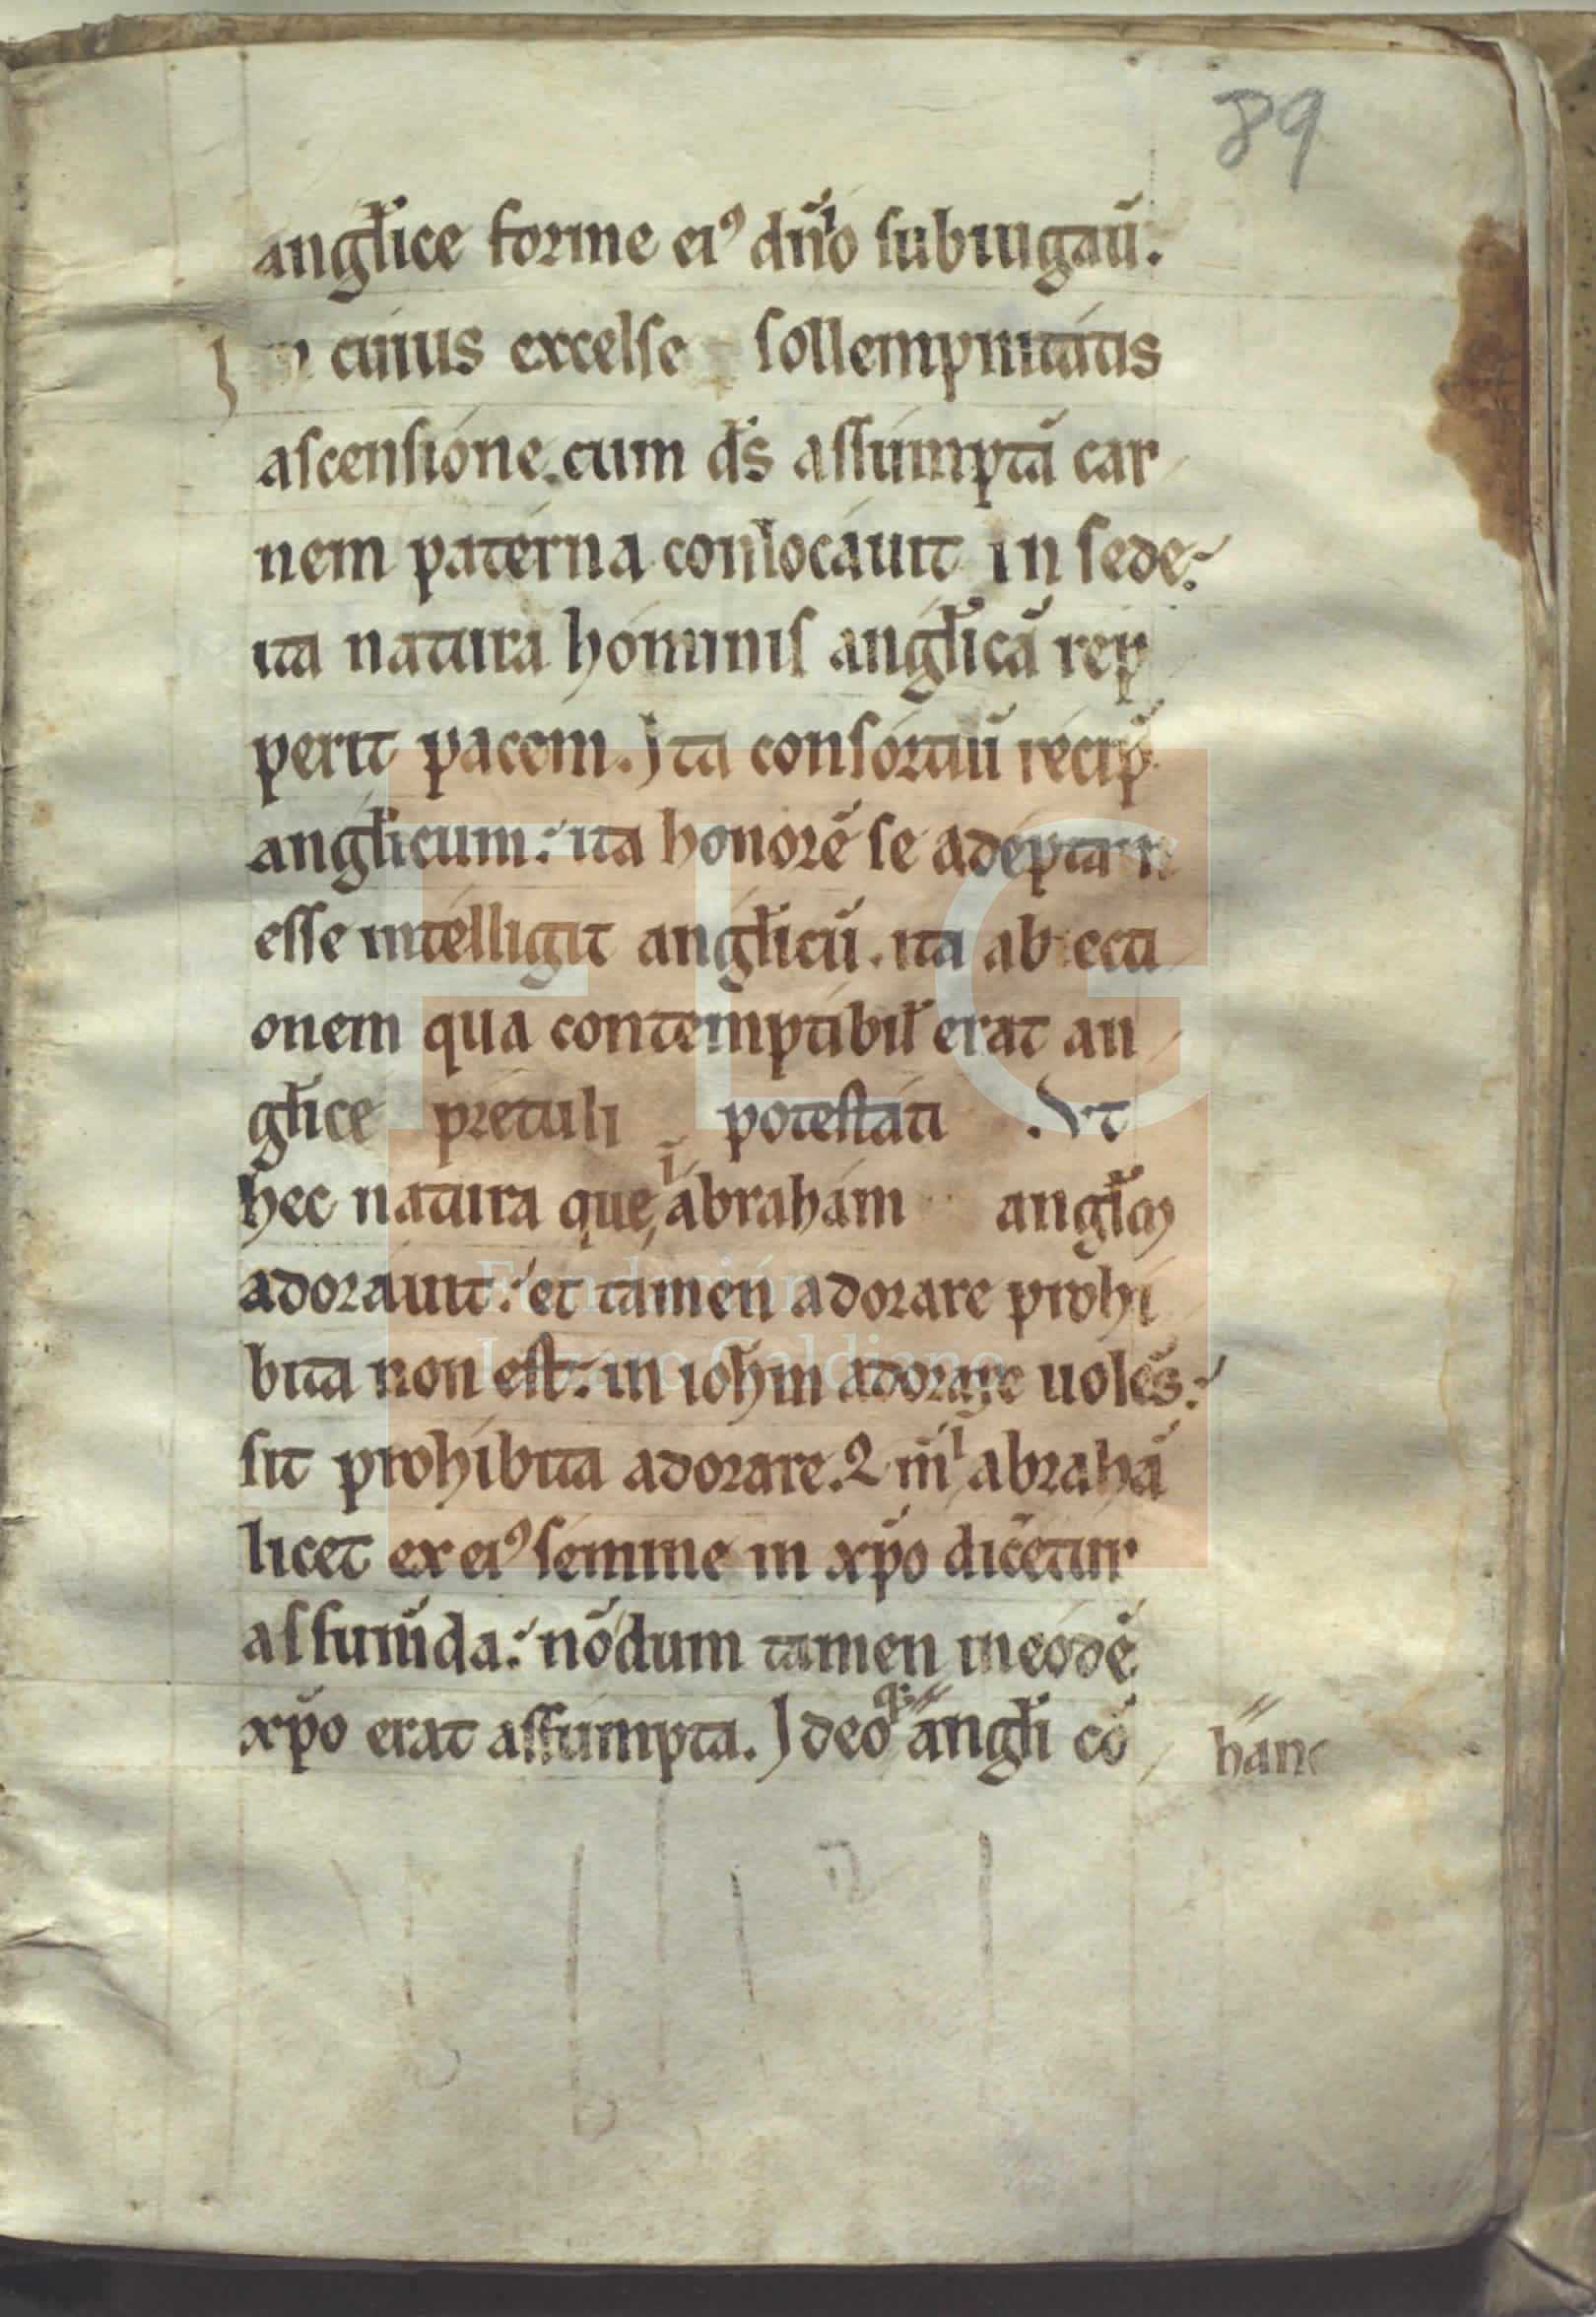 89
angl̅ice forme eiꝰ dn̅io subiugau̅.
In cuius excelse sollempnitatis
ascensione. cum ds̅ assumpta̅ car
nem paterna conlocauit in sede.
ita natura hominis angl̅ica̅ rep
perit pacem. Ita consortiu̅ recip̅
angl̅icum. ita honore̅ se adeptam
esse intelligit angl̅icu̅. ita abiecti
onem qua contemptibil̅ erat an
gl̅ice pretuli potestati . Vt
hec natura que abraham angl̅m
adorauit. et tamen adorare prohi
bita non est. in ioh̅m adorare uole̅s.
sit prohibita adorare. abraha̅
licet ex eiꝰ semine in xp̅o dice̅tur
assum̅da. no̅dum tamen in eode̅
xp̅o erat assumpta. Ideo angl̅i co̅
hanc
FLG
Fundación
Lázaro Galdiano